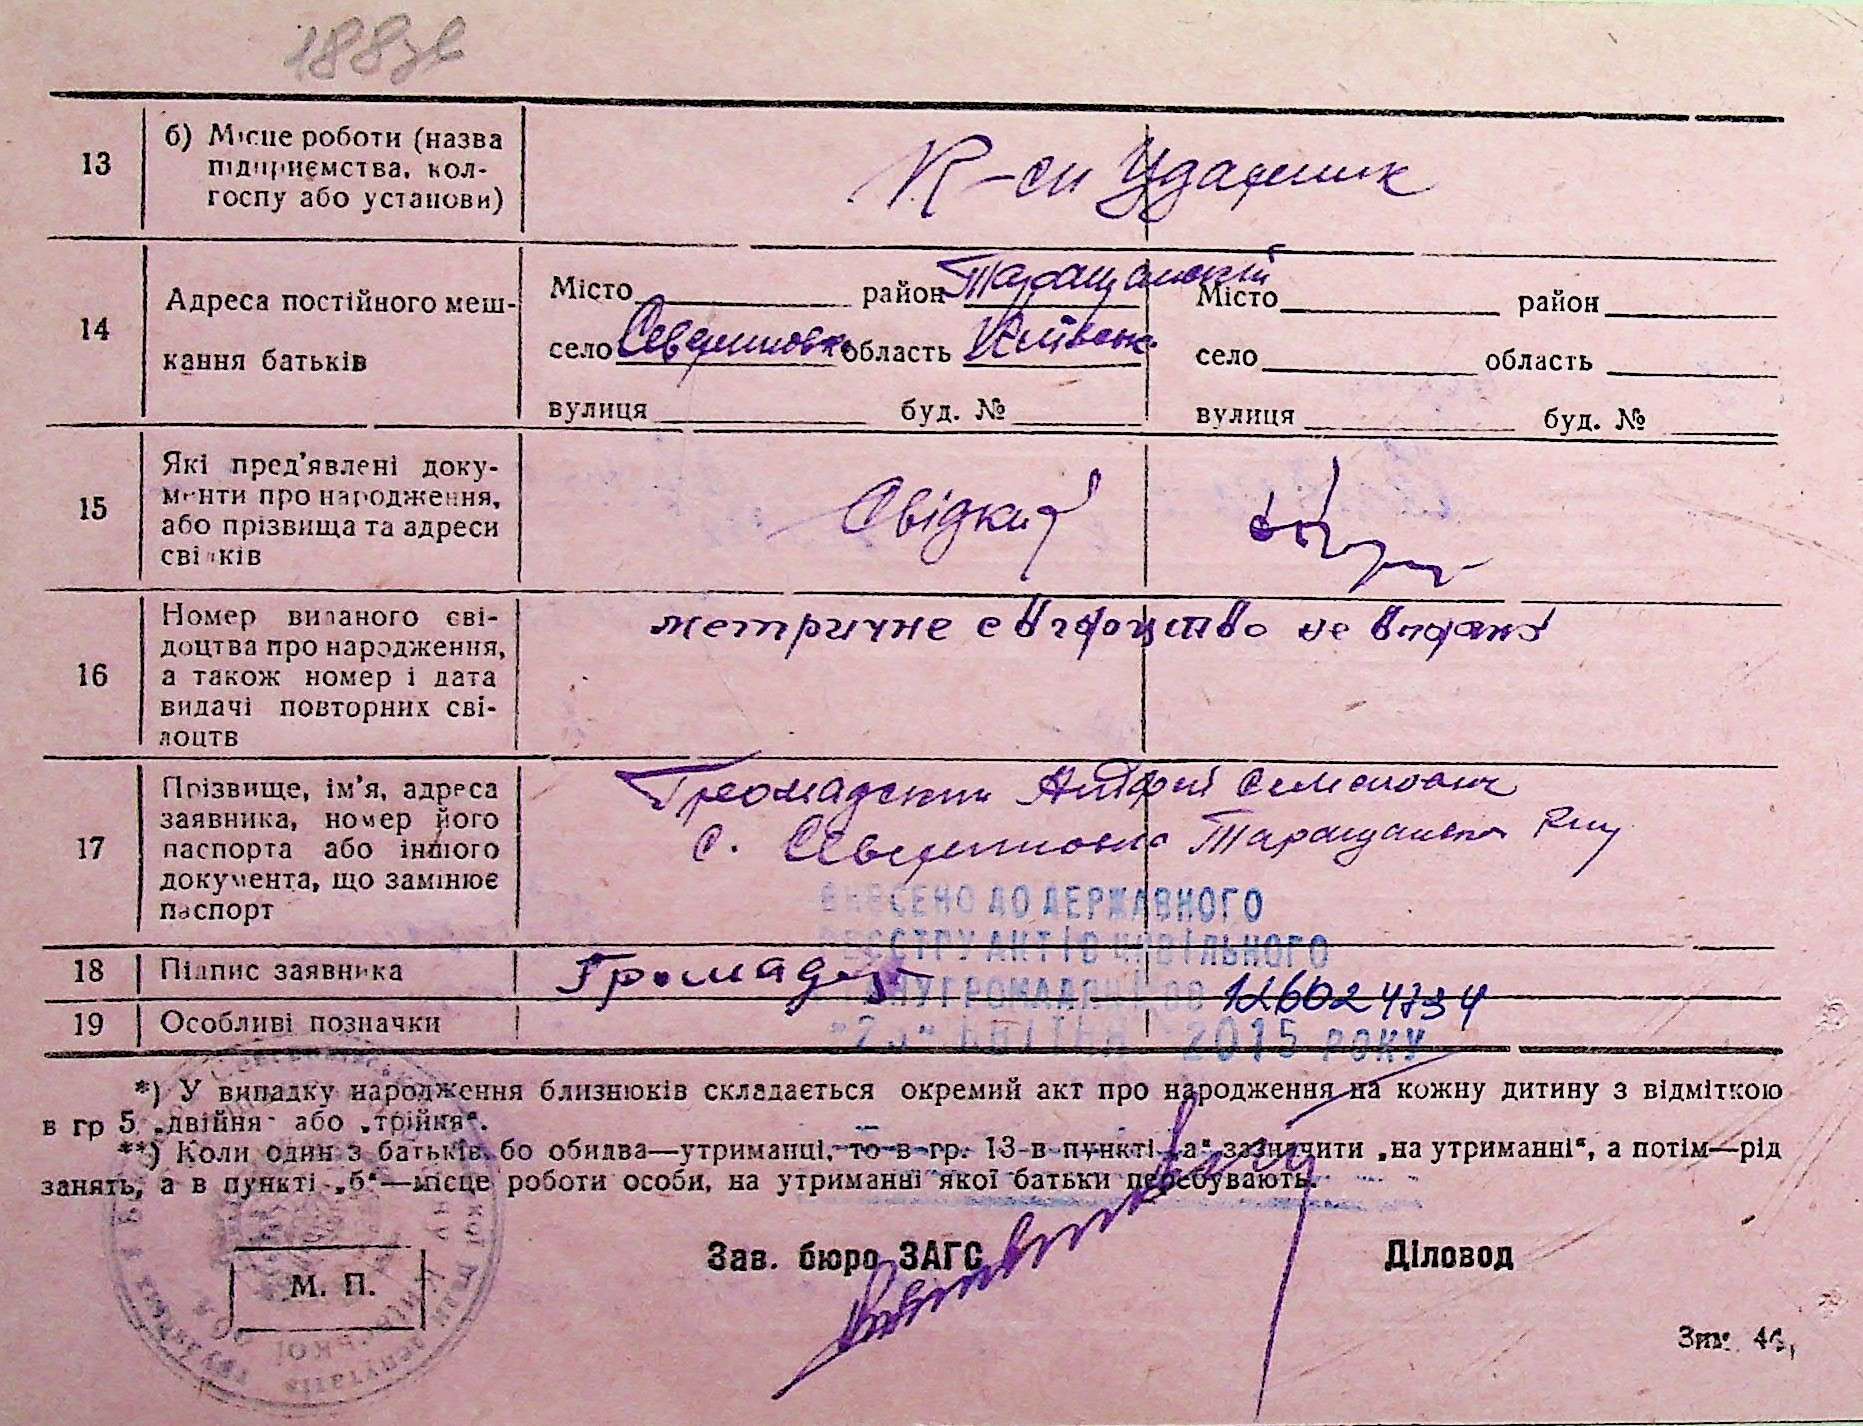 188зв
13
б) Місце роботи (назва
підприємства, кол-
госпу або установи)
К-сп Ударник
14
Адреса постійного меш-
кання батьків
Місто район Таращанський
село Севериновка область Київськ.
вулиця буд. №
Місто район
село область
вулиця буд. №
15
Які пред'явлені доку-
менти про народження,
або прізвища та адреси
свідків
Свідки
16
Номер виданого сві-
доцтва про народження,
а також номер і дата
видачі повторних сві-
доцтв
метричне свідоцтво не видано
17
Прізвище, ім'я, адреса
заявника, номер його
паспорта або іншого
документа, що замінює
паспорт
Громадський Андрій Семенович
с. Севериновка Таращанськ
ВНЕСЕНО ДО ДЕРЖАВНОГО
РЕЄСТРУ АКТІВ ЦИВІЛЬНОГО
СТАНУ ГРОМАДЯН
КВІТНЯ 2015 РОКУ
18
Підпис заявника
Громадс
19
Особливі позначки
*) У випадку народження близнюків складається окремий акт про народження на кожну дитину з відміткою
в гр 5 „двійня" або „трійня".
**) Коли один з батьків бо обидва—утриманці, то в гр. 13 в пункті „а" зазначити „на утриманні", а потім—рід
занять, а в пункті „б"—місце роботи особи, на утриманні якої батьки перебувають.
Зав. бюро ЗАГС
Діловод
М. П.
Зим. 46,